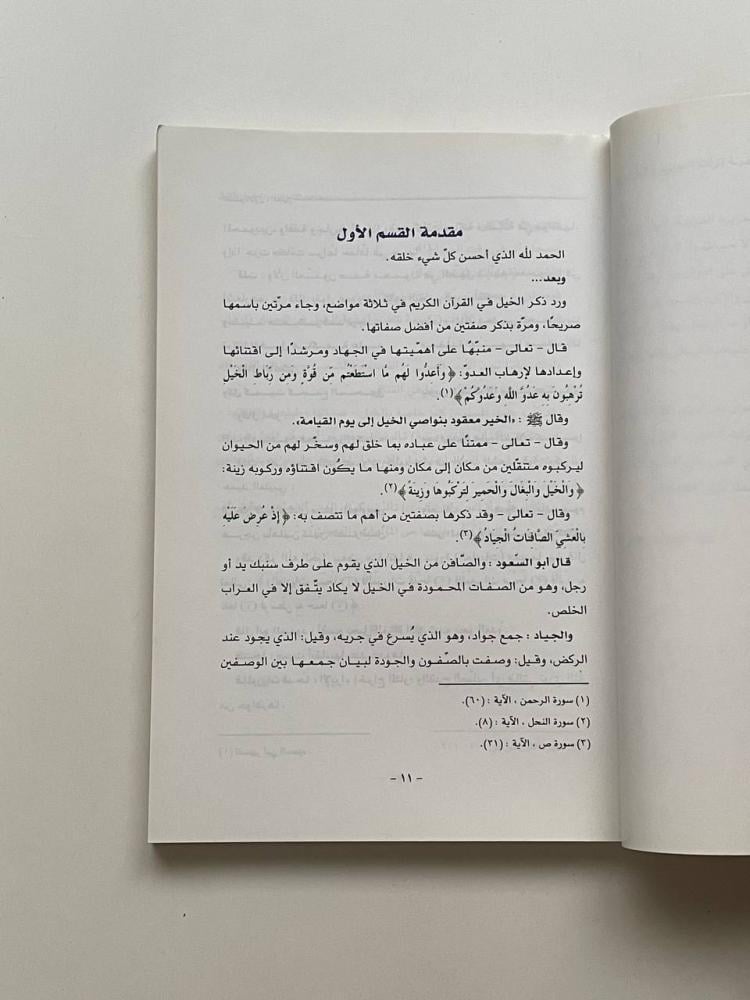 مقدمة القسم الأول
الحمد لله الذي أحسن كلّ شيء خلقه.
وبعد...
ورد ذكر الخيل في القرآن الكريم في ثلاثة مواضع، وجاء مرّتين باسمها
صريحًا، ومرّة بذكر صفتين من أفضل صفاتها.
قال - تعالى - منبّهًا على أهمّيتها في الجهاد ومرشدًا إلى اقتنائها
وإعدادها لإرهاب العدوّ: ﴿وَأَعِدُّوا لَهُم مَّا اسْتَطَعْتُم مِّن قُوَّةٍ وَمِن رِّبَاطِ الْخَيْلِ
تُرْهِبُونَ بِهِ عَدُوَّ اللَّهِ وَعَدُوَّكُمْ﴾(١).
وقال ﷺ : «الخير معقود بنواصي الخيل إلى يوم القيامة».
وقال - تعالى - ممتنًّا على عباده بما خلق لهم وسخّر لهم من الحيوان
ليركبوه متنقّلين من مكان إلى مكان ومنها ما يكون اقتناؤه وركوبه زينة:
﴿وَالْخَيْلَ وَالْبِغَالَ وَالْحَمِيرَ لِتَرْكَبُوهَا وَزِينَةً﴾(٢).
وقال - تعالى - وقد ذكرها بصفتين من أهم ما تتصف به: ﴿إِذْ عُرِضَ عَلَيْهِ
بِالْعَشِيِّ الصَّافِنَاتُ الْجِيَادُ﴾(٣).
قال أبو السّعود : والصّافن من الخيل الذي يقوم على طرف سنبك يد أو
رجل، وهو من الصفات المحمودة في الخيل لا يكاد يتّفق إلا في العراب
الخلص.
والجياد : جمع جواد، وهو الذي يُسرع في جريه، وقيل: الذي يجود عند
الركض، وقيل: وصفت بالصّفون والجودة لبيان جمعها بين الوصفين
(١) سورة الرحمن ، الآية : (٦٠).
(٢) سورة النحل ، الآية : (٨).
(٣) سورة ص ، الآية : (٣١).
- ١١ -